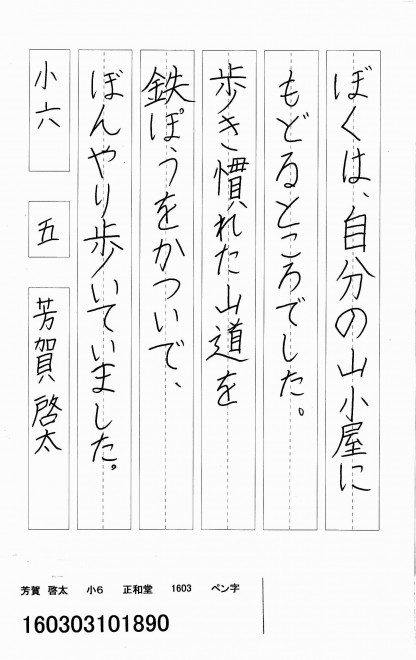 ぼくは、自分の山小屋に
もどるところでした。
歩き慣れた山道を
鉄ぽうをかついで、
ぼんやり歩いていました。
小六
五
芳賀啓太
芳賀 啓太 小6 正和堂 1603 ペン字
160303101890